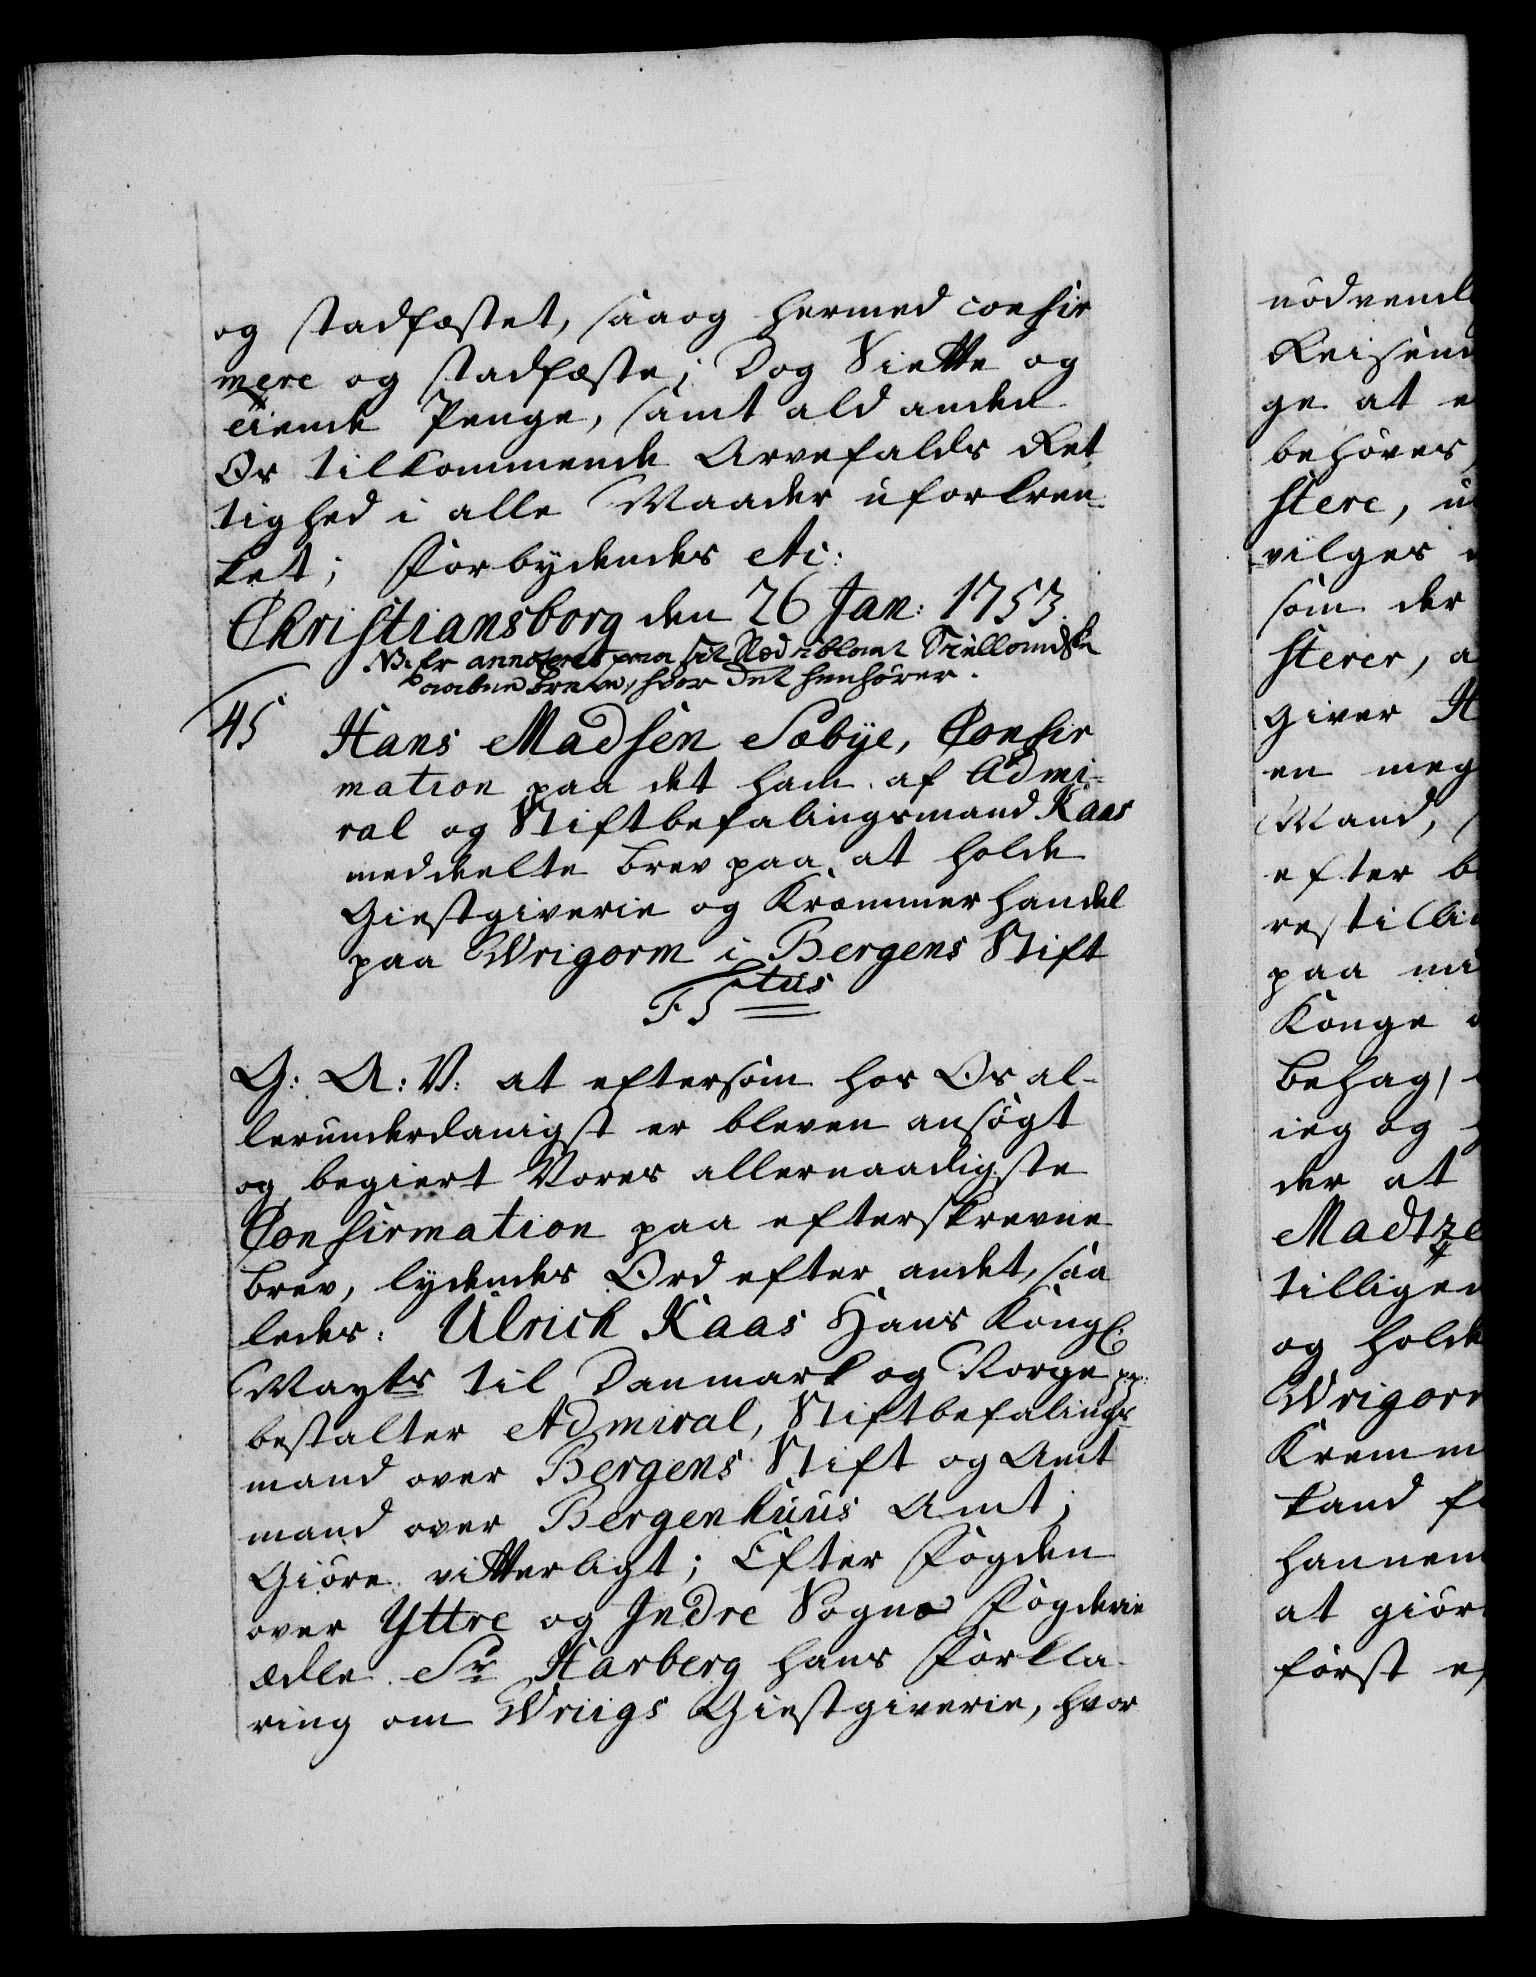 og stadfæstet, saa og hermed confir
mere og stadfæste; Dog Siette og
Tiende Penge, samt ald anden
Os tilkommende Arvefalds Ret
tighed i alle Maader uforkren-
ket; Forbydendes etc:
Christiansborg den 26 Jan: 1753.
NB. Er annoteret paa sit Stæd iblant Siellandske
aabne Breve, hvor det henhører.
45 Hans Madsen Sæbye, Confir
mation paa det ham af Admi-
ral og Stiftbefalingsmand Kaas
meddeelte Brev paa at holde
Giestgiverie og Kræmmerhandel
paa Wrigorm i Bergens Stift
F 5tus
G: A: V: at eftersom hos Os al-
lerunderdanigst er bleven ansøgt
og begiert Vores allernaadigste
Confirmation paa efterskrevne
Brev, lydendes Ord efter andet, saa
ledes: Ulrich Kaas Hans Kongl:
Mayts til Danmark og Norge pp:
bestalter Admiral, Stiftbefalings
mand over Bergens Stift og Amt
mand over Bergenhuus Amt;
Giøre vitterligt; Efter Fogden
over Yttre og Indre Sogns Fogderie
ædle Sr Harberg hans Forkla-
ring om Wriigs Giestgiverie, hvor
nødvendi
Reisend
ge at e
behøves,
stere, u
vilges
som der
sterer, a
giver H
en meg
Mand,
efter b
restilli
paa mi
Konge
Behag,
ieg og
der at
Madtze
tilligem
og holde
Wrigorm
Kremm
kand f
hannem
at giør
først e